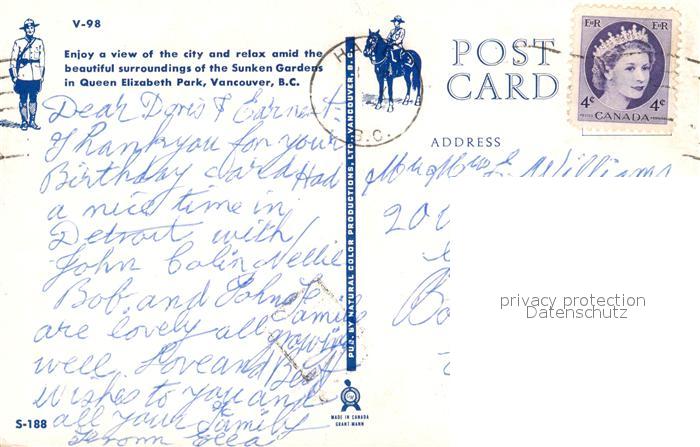 V-98
Enjoy a view of the city and relax amid the
beautiful surroundings of the Sunken Gardens
in Queen Elizabeth Park, Vancouver, B.C.
Dear Doris & Earnest.
Thankyou for your
Birthday card Had
a nice time in
Detroit with
John Colin Nellie
Bob and John's
Family
are lovely all growing
well. Love and Best
Wishes to you and
all your Family
from Ella
S-188
PUB. BY NATURAL COLOR PRODUCTIONS, LTD., VANCOUVER, B.C.
MADE IN CANADA
GRANT MANN
HA
B.C.
POST
CARD
ADDRESS
E II R E II R
4¢ 4¢
POSTES CANADA POSTAGE
Mr & Mrs E. Williams
20
privacy protection
Datenschutz